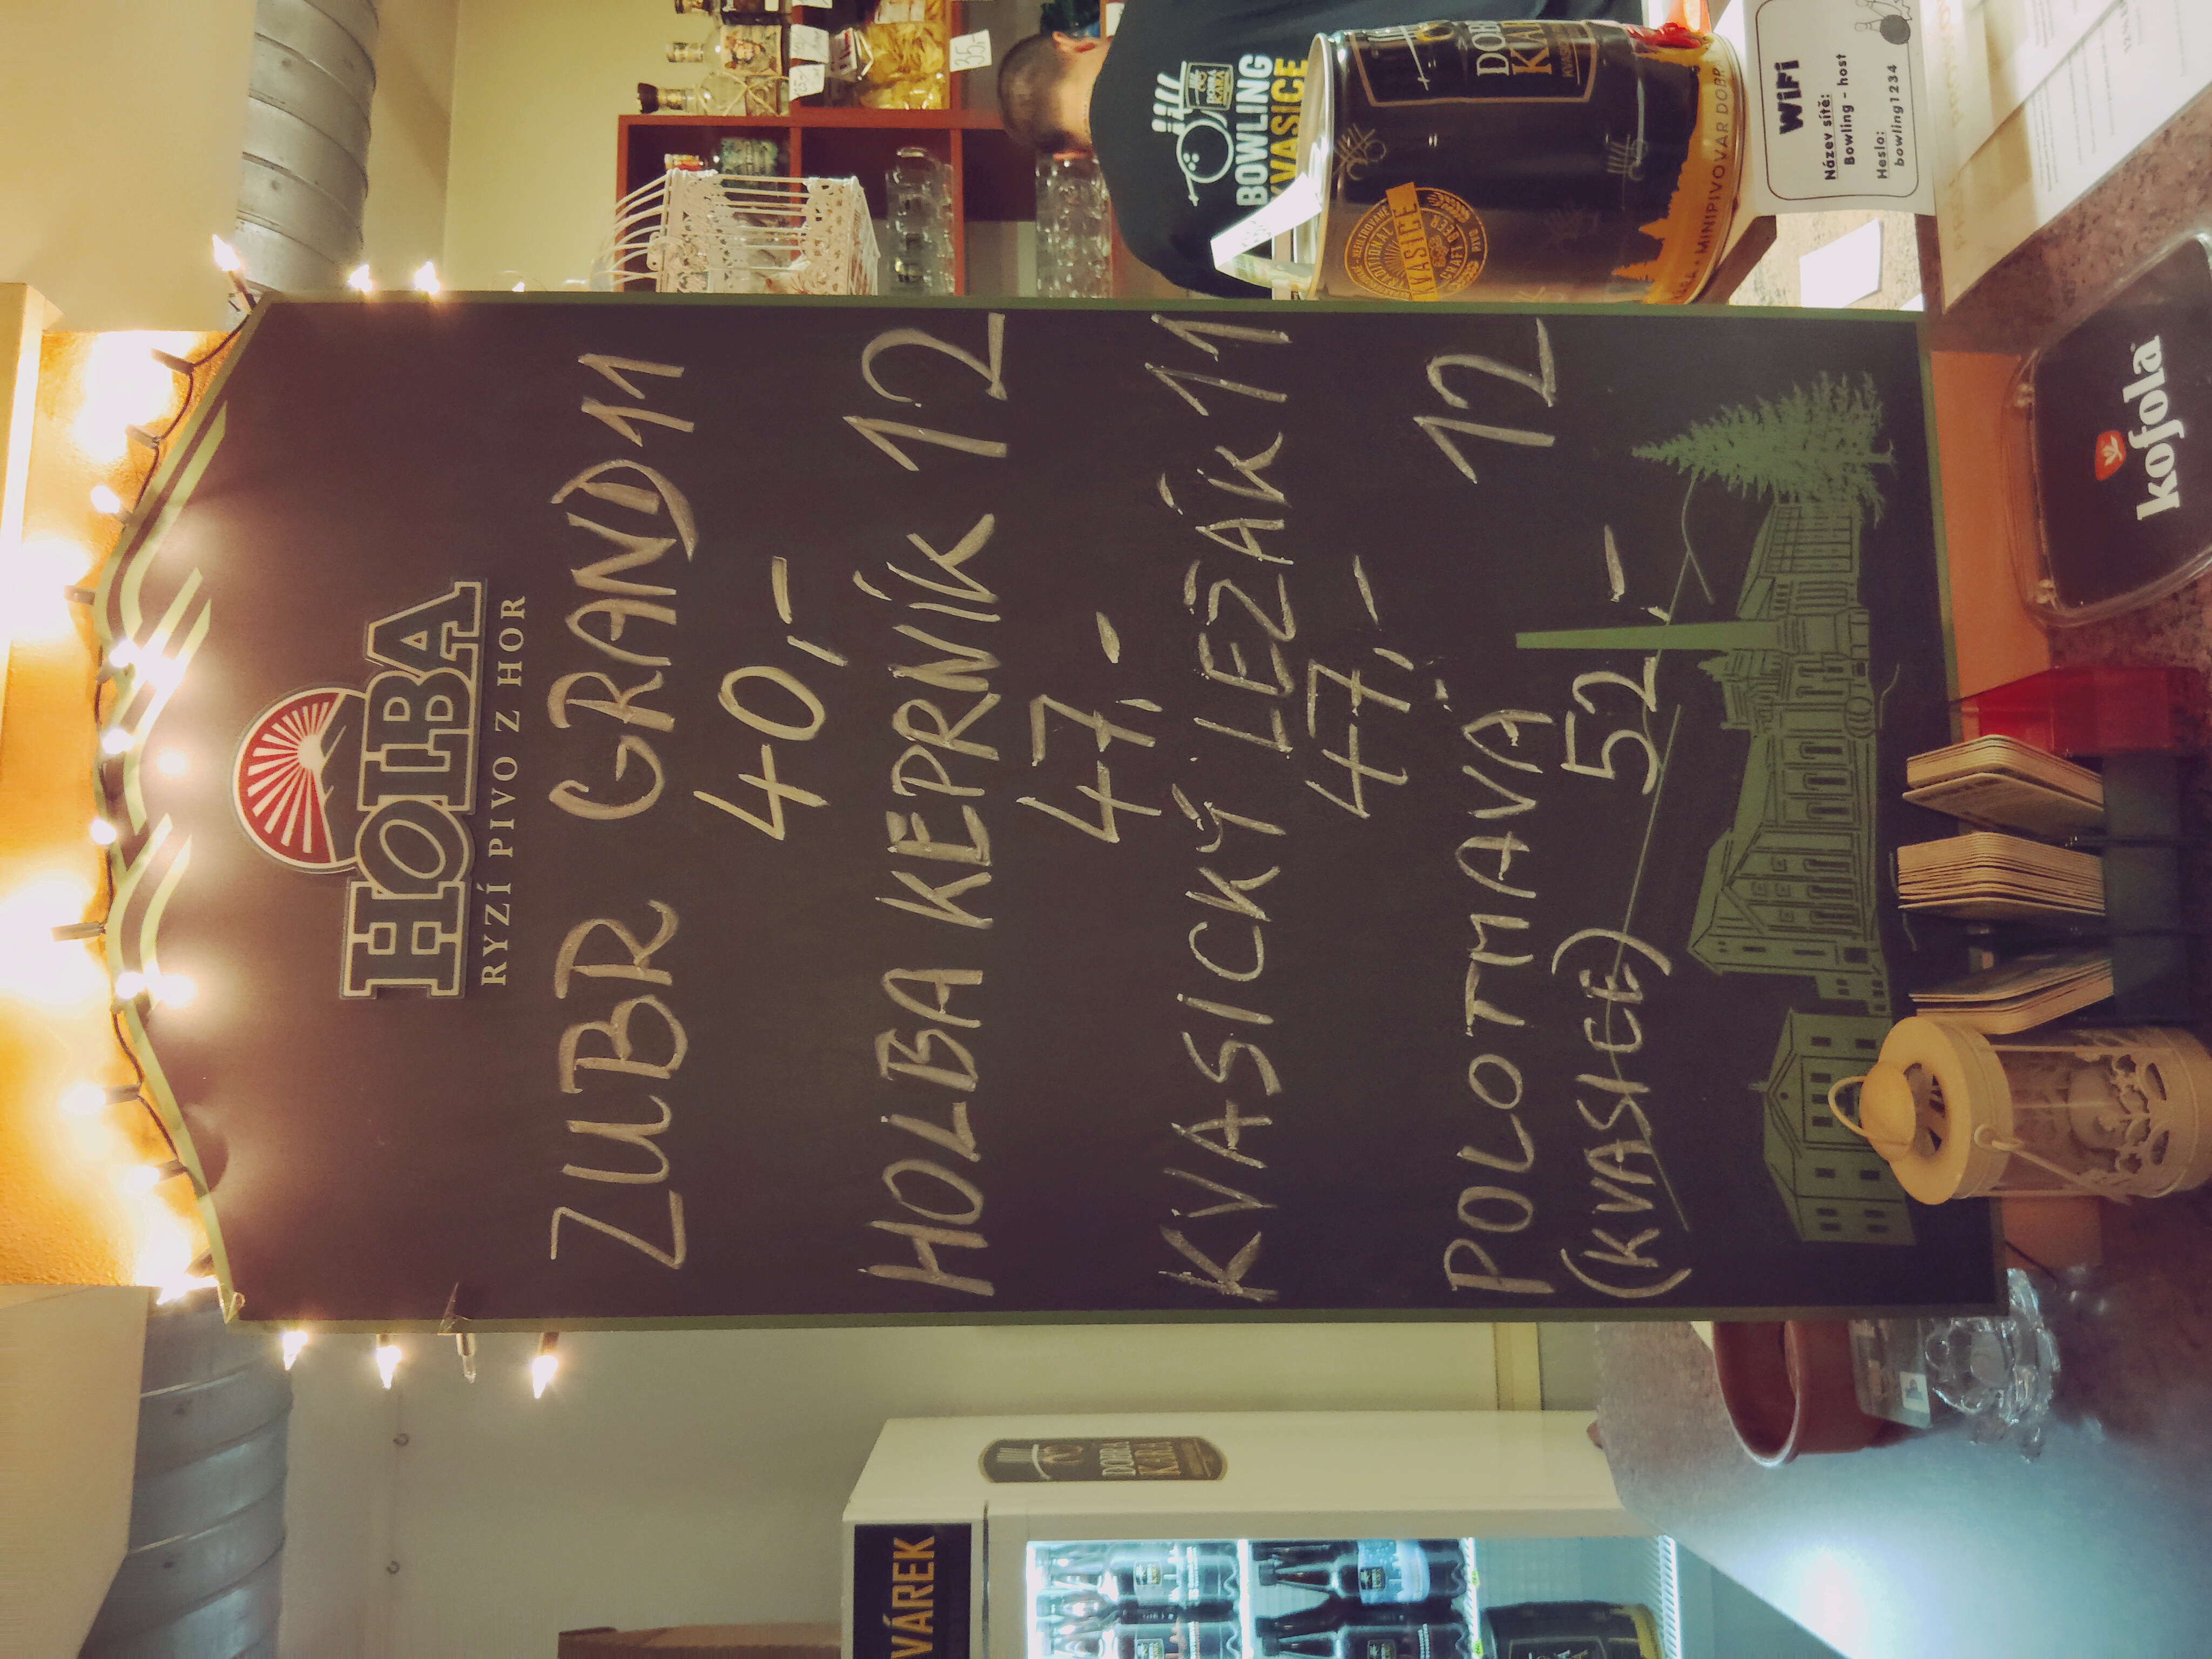 HOLBA
RYZÍ PIVO Z HOR
ZUBR GRAND 11
40,-
HOLBA KEPRNÍK 12
47,-
KVASICKÝ LEŽÁK 11
47,-
POLOTMAVÁ 12
(KVASICE) 52,-
VÁREK
DOBRÁ
KÁRA
35,-
BOWLING
KVASICE
KVASICE
CRAFT BEER
MINIPIVOVAR DOBR
WiFi
Název sítě:
Bowling - host
Heslo:
bowling1234
kofola